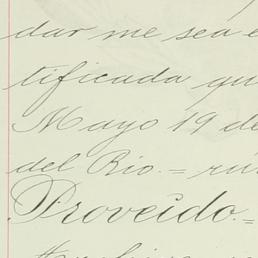 dar me sea e
tificada qu
Mayo 19 de
del Rio.= rú
Proveído.=